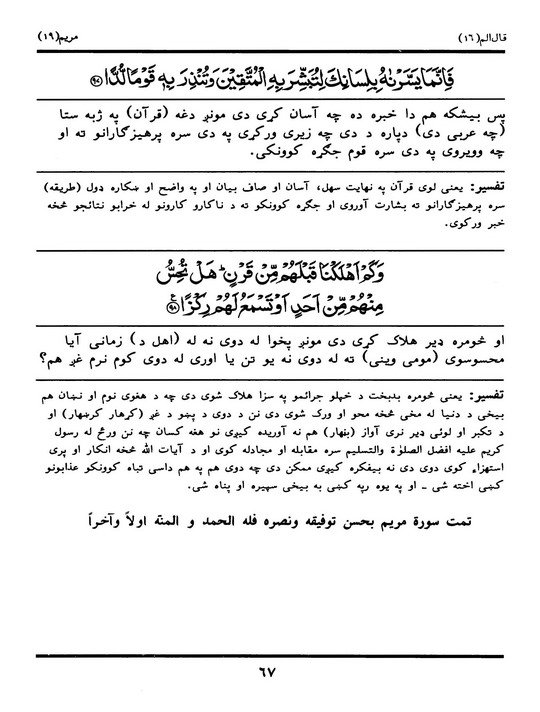 قال الم(١٦)
مريم(١٩)
فَاِنَّمَا يَسَّرْنٰهُ بِلِسَانِكَ لِتُبَشِّرَ بِهِ الْمُتَّقِيْنَ وَتُنْذِرَ بِهٖ قَوْمًا لُّدًّا ﴿٩٧﴾
پس بيشکه هم دا خبره ده چه آسان کړی دی مونږ دغه (قرآن) په ژبه ستا
(چه عربی دی) دپاره د دی چه زيری ورکړی په دی سره پرهيزګارانو ته او
چه وويروی په دی سره قوم جګړه کوونکی.
تفسير: يعنی لوی قرآن په نهايت سهل، آسان او صاف بيان او په واضح او ښکاره ډول (طريقه)
سره پرهيزګارانو ته بشارت آوروی او جګړه کوونکو ته د ناکارو کارونو له خرابو نتائجو څخه
خبر ورکوی.
وَكَمْ اَهْلَكْنَا قَبْلَهُمْ مِّنْ قَرْنٍ ؕ هَلْ تُحِسُّ
مِنْهُمْ مِّنْ اَحَدٍ اَوْ تَسْمَعُ لَهُمْ رِكْزًا ﴿٩٨﴾
او څومره ډير هلاک کړی دی مونږ پخوا له دوی نه له (اهل د) زمانی آيا
محسوسوی (مومی وينی) ته له دوی نه يو تن يا اوری له دوی کوم نرم غږ هم؟
تفسير: يعنی څومره بدبخت د خپلو جرائمو په سزا هلاک شوی دی چه د هغوی نوم او نښان هم
بيخی د دنيا له مخی څخه محو او ورک شوی دی نن د دوی د پښو د غږ (کرهار کرښهار) او
د تکبر او لوئی ډير نری آواز (بڼهار) هم نه آوريده کيږی نو هغه کسان چه نن ورځ له رسول
کريم عليه افضل الصلوٰة والتسليم سره مقابله او مجادله کوی او د آيات الله څخه انکار او پری
استهزاء کوی دوی دی نه بيفکره کيږی ممکن دی چه دوی هم په هم داسی تباه کوونکو عذابونو
کښی اخته شی ـ او په يوه رپه کښی به بيخی سپيره او پناه شی.
تمت سورة مريم بحسن توفيقه ونصره فله الحمد و المنة اولاً وآخراً
٦٧